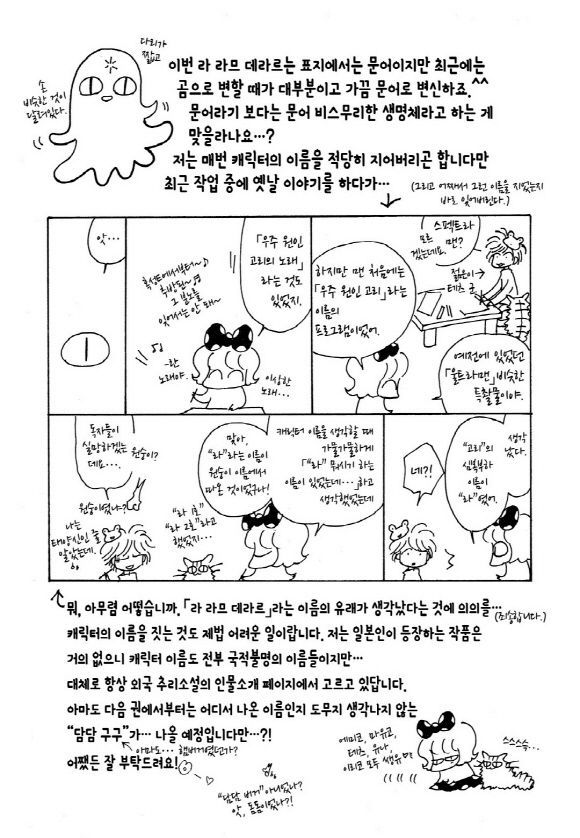 다리가
짧고
손
비슷한 것이
달려있다.
이번 라 라므 데라르는 표지에서는 문어이지만 최근에는
곰으로 변할 때가 대부분이고 가끔 문어로 변신하죠.^^
문어라기 보다는 문어 비스무리한 생명체라고 하는 게
맞을라나요…?
저는 매번 캐릭터의 이름을 적당히 지어버리곤 합니다만
최근 작업 중에 옛날 이야기를 하다가…
(그리고 어째서 그런 이름을 지었는지
바로 잊어버린다.)
스펙트라
모르
겠는데요. 맨?
젊은이
테츠 군
예전에 있었던
「울트라맨」 비슷한
특촬물이야.
하지만 맨 처음에는
「우주 원인 고리」라는
이름의
프로그램이었어.
「우주 원인
고리의 노래」
라는 것도
있었지.
추방된~♬
그 분노를
잊어서는 안 돼~
♪♪
-란
노래야.
이상한
노래…
앗…
생각
났다.
"고리"의
심복부하
이름이
"라"였어.
네?!
캐릭터 이름을 생각할 때
가물가물하게
「"라" 뭐시기 하는
이름이 있었는데…」하고
생각했었는데
맞아,
"라"라는 이름이
원숭이 이름에서
따온 것이었구나!
"라 1호"
"라 2호"라고
했었지…
독자들이
실망하겠는
데요….
원숭이?
원숭이였나?
나는
태양신인 줄
알았는데.
뭐, 아무렴 어떻습니까. 「라 라므 데라르」라는 이름의 유래가 생각났다는 것에 의의를…
(죄송합니다.)
캐릭터의 이름을 짓는 것도 제법 어려운 일이랍니다. 저는 일본인이 등장하는 작품은
거의 없으니 캐릭터 이름도 전부 국적불명의 이름들이지만…
대체로 항상 외국 추리소설의 인물소개 페이지에서 고르고 있답니다.
아마도 다음 권에서부터는 어디서 나온 이름인지 도무지 생각나지 않는
"담담 구구"가… 나올 예정입니다만…?!
아마도… 햄버거였던가?
어쨌든 잘 부탁드려요!
"담담 버거" 아니었나?
앗, 돔돔이었나?!
에미코, 마유코,
테츠, 유나,
이리코 모두 쌩유♡
스스스슥…